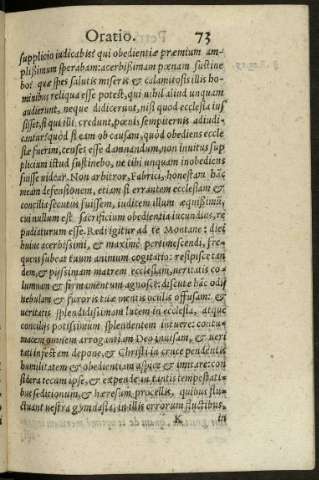 Oratio. 73
supplicio iudicabist qui obedientiæ præmium am-
plißimum sperabam: acerbißimam pœnam sustine
bo? quæ spes salutis miseris & calamitosis illis ho-
minibus reliqua esse potest, qui nihil aliud unquam
audierunt, neque didicerunt, nisi quod ecclesia ius
sisset, si qui illi, credunt, pœnis sempiternis adiudi-
cantur? quòd si eam ob causam, quòd obediens eccle
siæ fuerim, censes esse damnandum, non inuitus sup
plicium istud sustinebo, ne tibi unquam inobediens
fuisse uidear. Non arbitror, Fabrici, honestam hãc
meam defensionem, etiam si errantem ecclesiam &
concilia secutus fuissem, iudicem illum æquißimũ,
cui nullum est sacrificium obedientia iucundius, re
pudiaturum esse. Redi igitur ad te Montane: diei
huius acerbissimi, & maximè pertimescendi, fre-
quens subeat tuum animum cogitatio: respisce tan
dem, & pijssimam matrem ecclesiam, ueritatis co-
lumnam & firmamentum agnosce: discute hãc odij
nebulam & furoris tuæ mentis oculis offusam: &
ueritatis splendidissimam lucem in ecclesia, atque
concilijs potissimum splendentem intuere: contu-
macem omnem arrogantiam Deo inuisam, & ueri
tati infectam depone, & Christi in cruce pendentis
humilitatem & obedientiam aspice & imitare: con
sidera tecum ipse, & expende in tantis tempestati-
bus seditionum, & hæresum procellis, quibus fluc-
ctuant uestra gymnasia, in illis errorum fluctibus,
K in